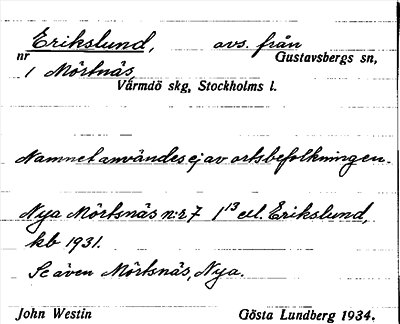 Erikslund, avs. från
nr Gustavsbergs sn,
1 Mörtnäs,
Värmdö skg, Stockholms l.
Namnet användes ej av ortsbefolkningen.
Nya Mörtsnäs n:r 7 1¹³ ell. Erikslund,
kb 1931.
Se även Mörtsnäs, Nya.
John Westin Gösta Lundberg 1934.